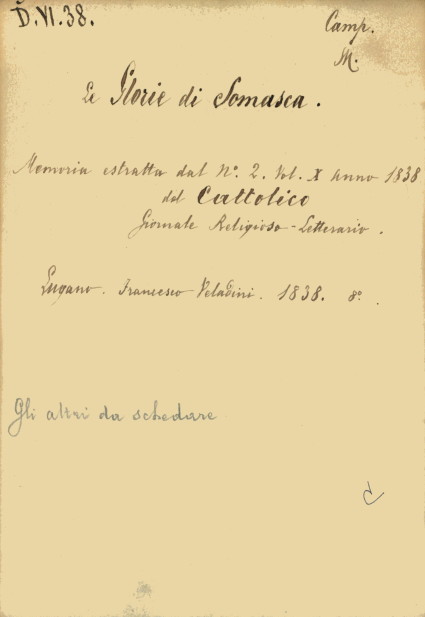 Ď.VI.38.
Camp.
M.
Le Glorie di Somasca.
Memoria estratta dal N°. 2. Vol. X Anno 1838
del Cattolico
Giornale Religioso-Letterario.
Lugano. Francesco Veladini. 1838. 8°.
Gli altri da schedare